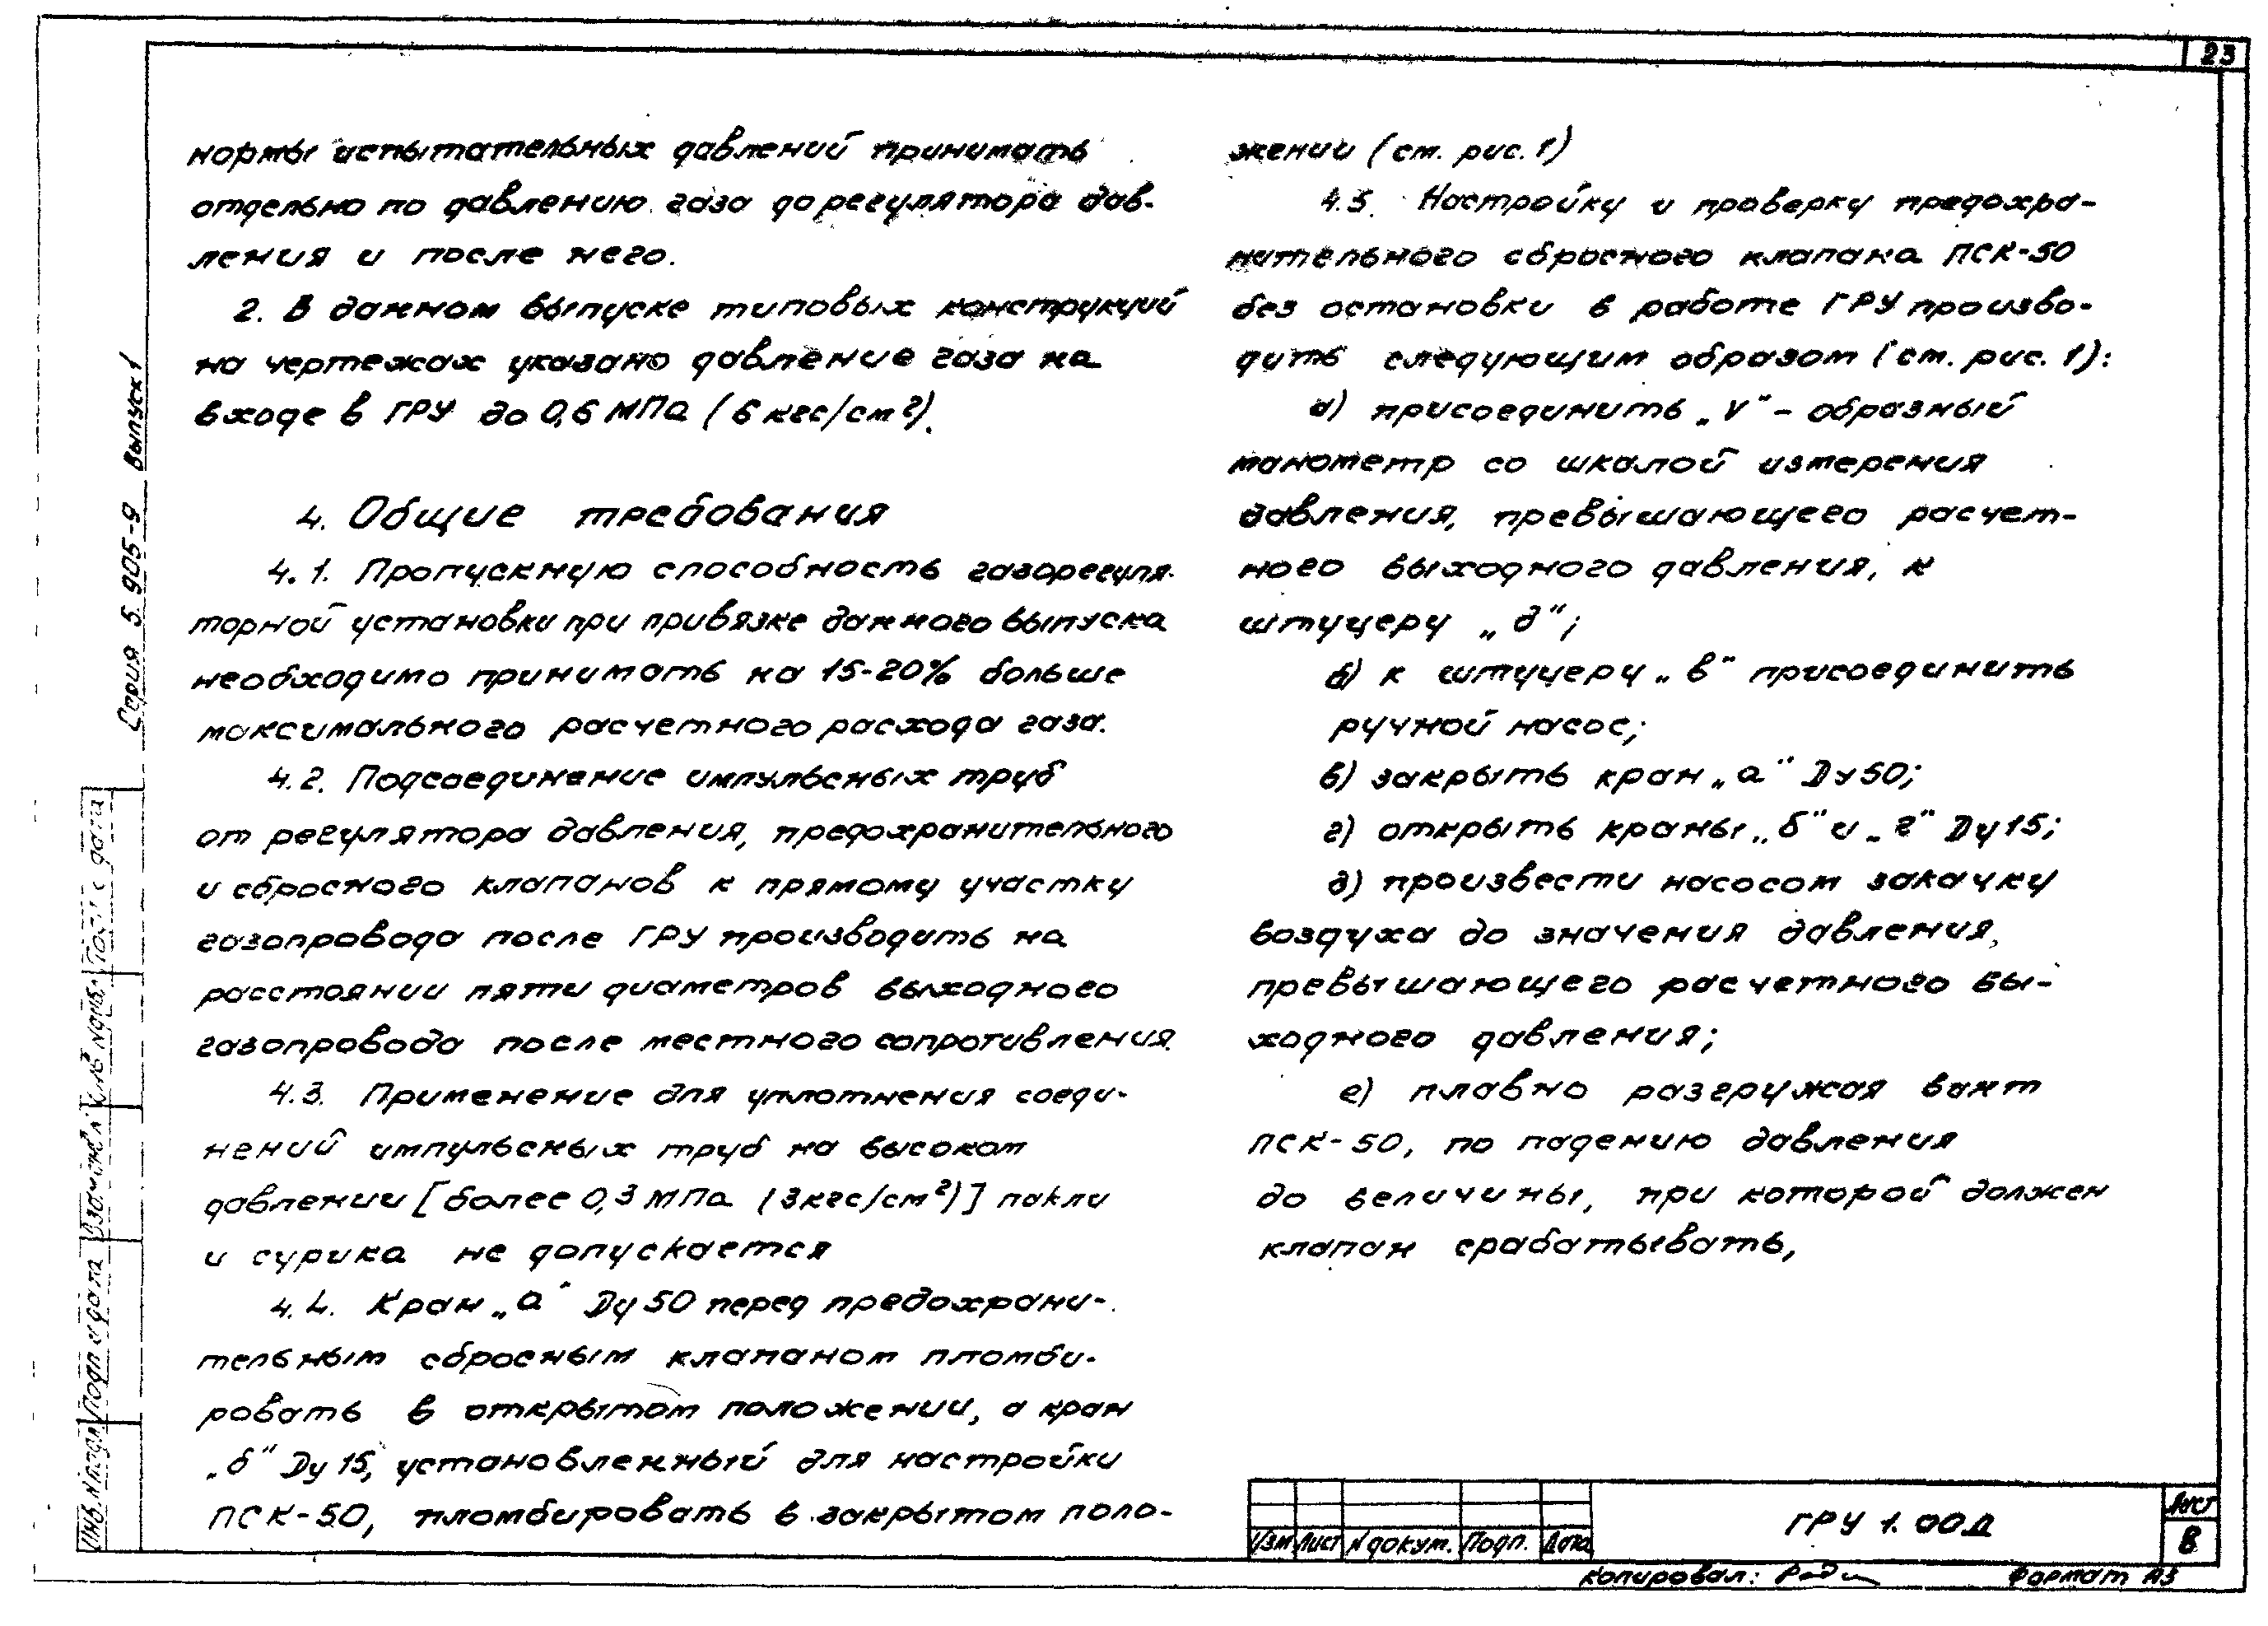 23
нормы испытательных давлений принимать
отдельно по давлению газа до регулятора дав-
ления и после него.
2. В данном выпуске типовых конструкций
на чертежах указано давление газа на
входе в ГРУ до 0,6 МПа (6 кгс/см²).
4. Общие требования
4.1. Пропускную способность газорегуля-
торной установки при привязке данного выпуска
необходимо принимать на 15-20% больше
максимального расчетного расхода газа.
4.2. Подсоединение импульсных труб
от регулятора давления, предохранительного
и сбросного клапанов к прямому участку
газопровода после ГРУ производить на
расстоянии пяти диаметров выходного
газопровода после местного сопротивления.
4.3. Применение для уплотнения соеди-
нений импульсных труб на высоком
давлении [более 0,3 МПа (3кгс/см²)] пакли
и сурика не допускается
4.4. Кран „а" Ду 50 перед предохрани-
тельным сбросным клапаном пломби-
ровать в открытом положении, а кран
„б" Ду 15, установленный для настройки
ПСК-50, пломбировать в закрытом поло-
жении (ст. рис. 1)
4.5. Настройку и проверку предохра-
нительного сбросного клапана ПСК-50
без остановки в работе ГРУ произво-
дить следующим образом (ст. рис. 1):
а) присоединить „V"-образный
манометр со шкалой измерения
давления, превышающего расчет-
ного выходного давления, к
штуцеру „д";
б) к штуцеру „в" присоединить
ручной насос;
в) закрыть кран „а" Ду 50;
г) открыть краны „б" и „г" Ду 15;
д) произвести насосом закачку
воздуха до значения давления,
превышающего расчетного вы-
ходного давления;
е) плавно разгружая винт
ПСК-50, по падению давления
до величины, при которой должен
клапан срабатывать,
Серия 5.905-9 Выпуск 1
Инв. № подл. Подп. и дата Взам. инв. № Инв. № дубл. Подп. и дата
Изм Лист № докум. Подп. Дата
ГРУ 1.00Д
Лист
8
Копировал:
Формат А3